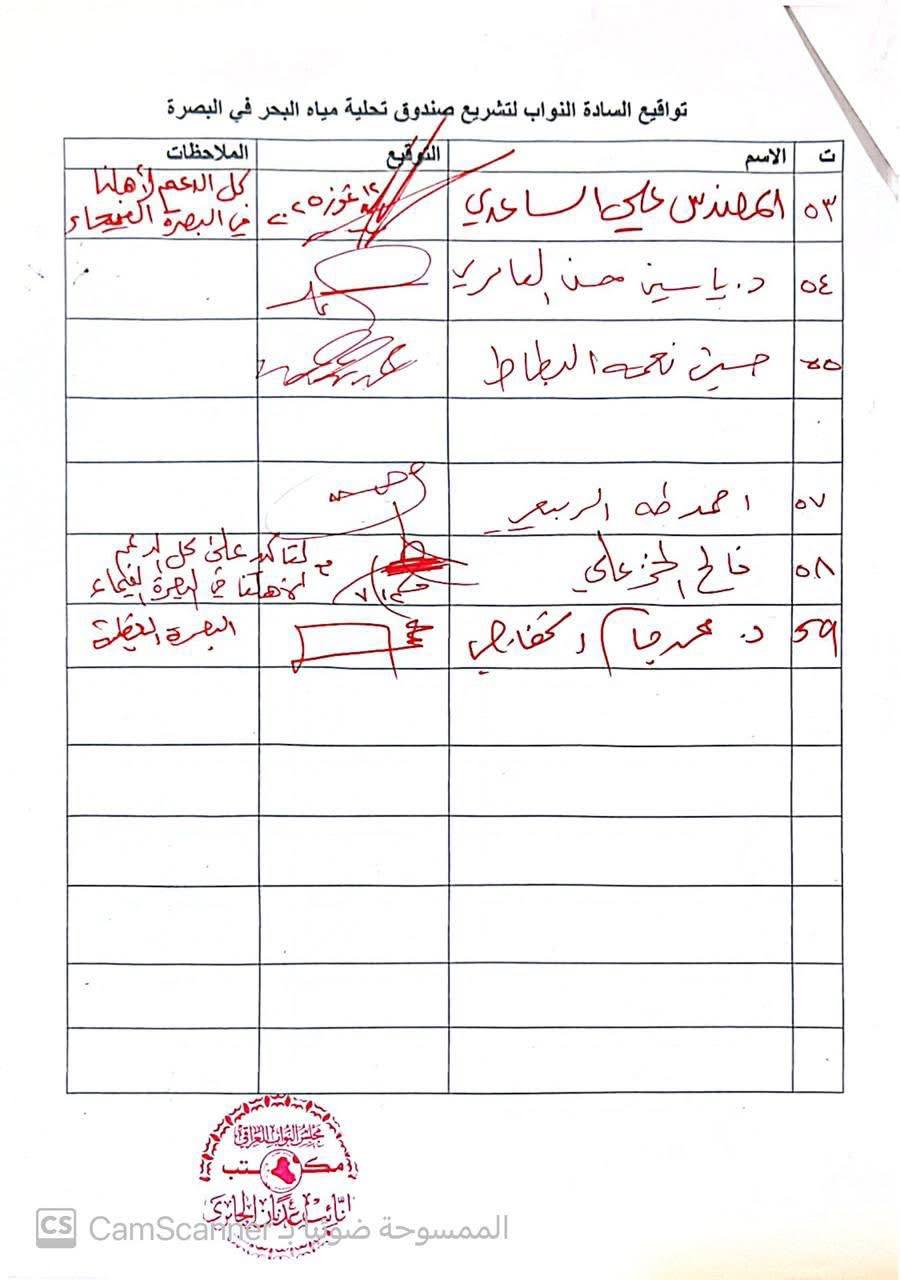 تواقيع السادة النواب لتشريع صندوق تحلية مياه البحر في البصرة
ت الاسم التوقيع الملاحظات
٥٣ المهندس علي الساعدي ١٢ تموز ٢٠٢٥ كل الدعم لأهلنا
في البصرة الفيحاء
٥٤ د. ياسين حسن العامري
٥٥ حسين نعمه البطاط
٥٧ احمد طه الربيعي
٥٨ فالح الخزعلي ٧/١٢ كل الدعم
لأهلنا في البصرة الفيحاء
٥٩ د. محمد البصرة
مجلس النواب العراقي
مكتب
النائب عدنان الجابري
CS الممسوحة ضوئيا بـ CamScanner